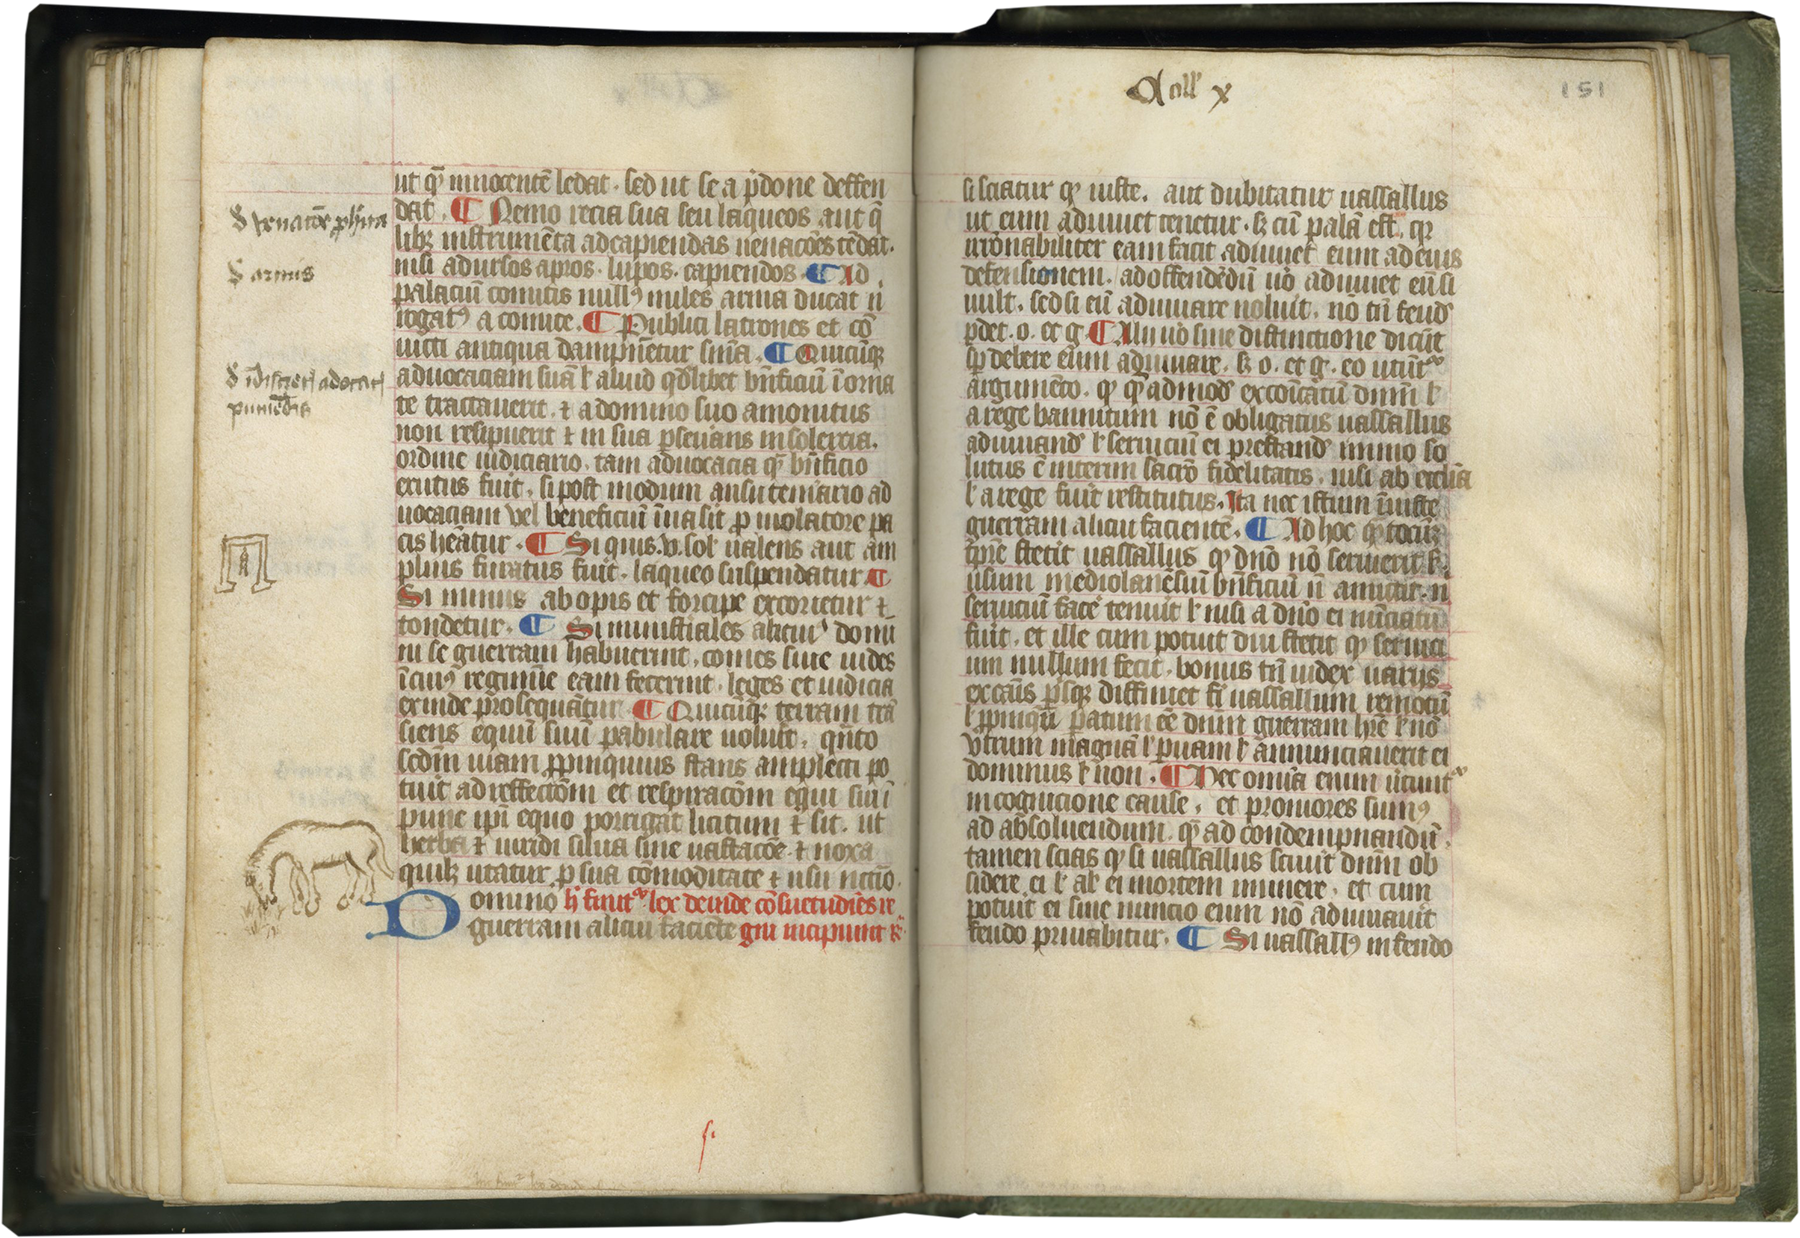 ut qͣ innocentē ledat · sed ut se a p̄done deffen
dat · ¶ Nemo recia sua seu laqueos aut q̄
libꝫ instrumēta ad capiendas uenacōes tēdat ·
nisi ad ursos apros · lupos · capiendos · ¶ Ad
palaciū comitis nullꝰ miles arma ducat ñ
rogatꝰ a comite · ¶ Publici latrones et cō
uicti antiqua dampnētur sn̄ia · ¶ Quicūqꝫ
aduocaciam suā ł aliud qd̄libet bn̄ficiū
te tractauerit · ⁊ a domino suo amonitus
non resipuerit ⁊ in sua p̱seuans insolencia ·
ordine iudiciario · tam aduocacia qͣ bn̄ficio
exutus fuit · si post modum ausu temario ad
uocaciam vel beneficiū īuasit p̱ uiolatore pa
cis hēatur · ¶ Si quis · v · sol ualens aut am
plius furatus fuit · laqueo suspendatur ¶
Si minus ab opis et forcipe excorietur ⁊
tondetur · ¶ Si ministiales alicuiꝰ domi
ni se guerram habuerint · comes siue iudex
ī cuiꝰ regimīe eam fecerint · leges et iudicia
exinde p̄sequātur ¶ Quicūqꝫ terram trā
siens equū suū pabulare uolūit ·
sedm̄ uiam ꝓpinquius stans amplecti po
tuit ad reffectōm et respiracōm equi sui ī
pune ip̄i equo porrigat licitum ⁊ sit · ut
herba ⁊ uiridi silua sine uastacōe · ⁊ noxa
quibꝫ utatur p̱ sua cōmoditate ⁊ usu
Domino lex deinde cōsuetudīes re
guerram alicui faciēte gni incipiunt
§ armis
A coll x
151
si sciatur qꝫ iuste · aut dubitatur uassallus
ut eum adiuuet tenetur · sꝫ cū palā est · qꝫ
irrōnabiliter eam facit adiuuet eum ad eius
defensionem · ad offendēdū uo adiuuet eū si
uult · sed si eū adiuuare noluit · nō tn̄ feudͫ
pdet · o · et g · ¶ Alii uo sine distinctione dicūt
qꝫ debere eum adiuuare · sꝫ o · et g · eo utūtͬ
argumēto · qꝫ qͣ admodͫ excōicatū dnm̄ ł
a rege bannitum nō ē obligatus uassallus
adiuuandͫ ł seruiciū ei prestandͫ immo so
lutus ē interim sacro fidelitatis · nisi ab ecclīa
ł a rege fuit restitutus · Ita nec istum īiuste
guerram alicui facientē · ¶ Ad hoc
stetit uassallus qꝫ dno nō
usum mediolanēsiū bn̄ficiū ñ amittit · ñ
seruiciū facē tenuit ł nisi a dn̄o ei nūciatū
fuit · et ille cum potuit diu stetit qꝫ serui
um nullum fecit · bonus tn̄ iudex uarijs
ex cāis diffiniet uassallum remotū
guerram
vtrum magnā ł p̱uam ł annunciauerit ei
dominus ł non · ¶ Nec omīa enim
in cognicione cause · et promores sumꝰ
ad absoluendum · qͣ ad condempnandū ·
tamen scias qꝫ si uassallus sciuit dnm̄ ob
sidere ei ł ab ei mortem · et cum
potuit ei siue nuncio eum nō adiuuauit
feudo priuabitur · ¶ Si uassallꝰ in feudo